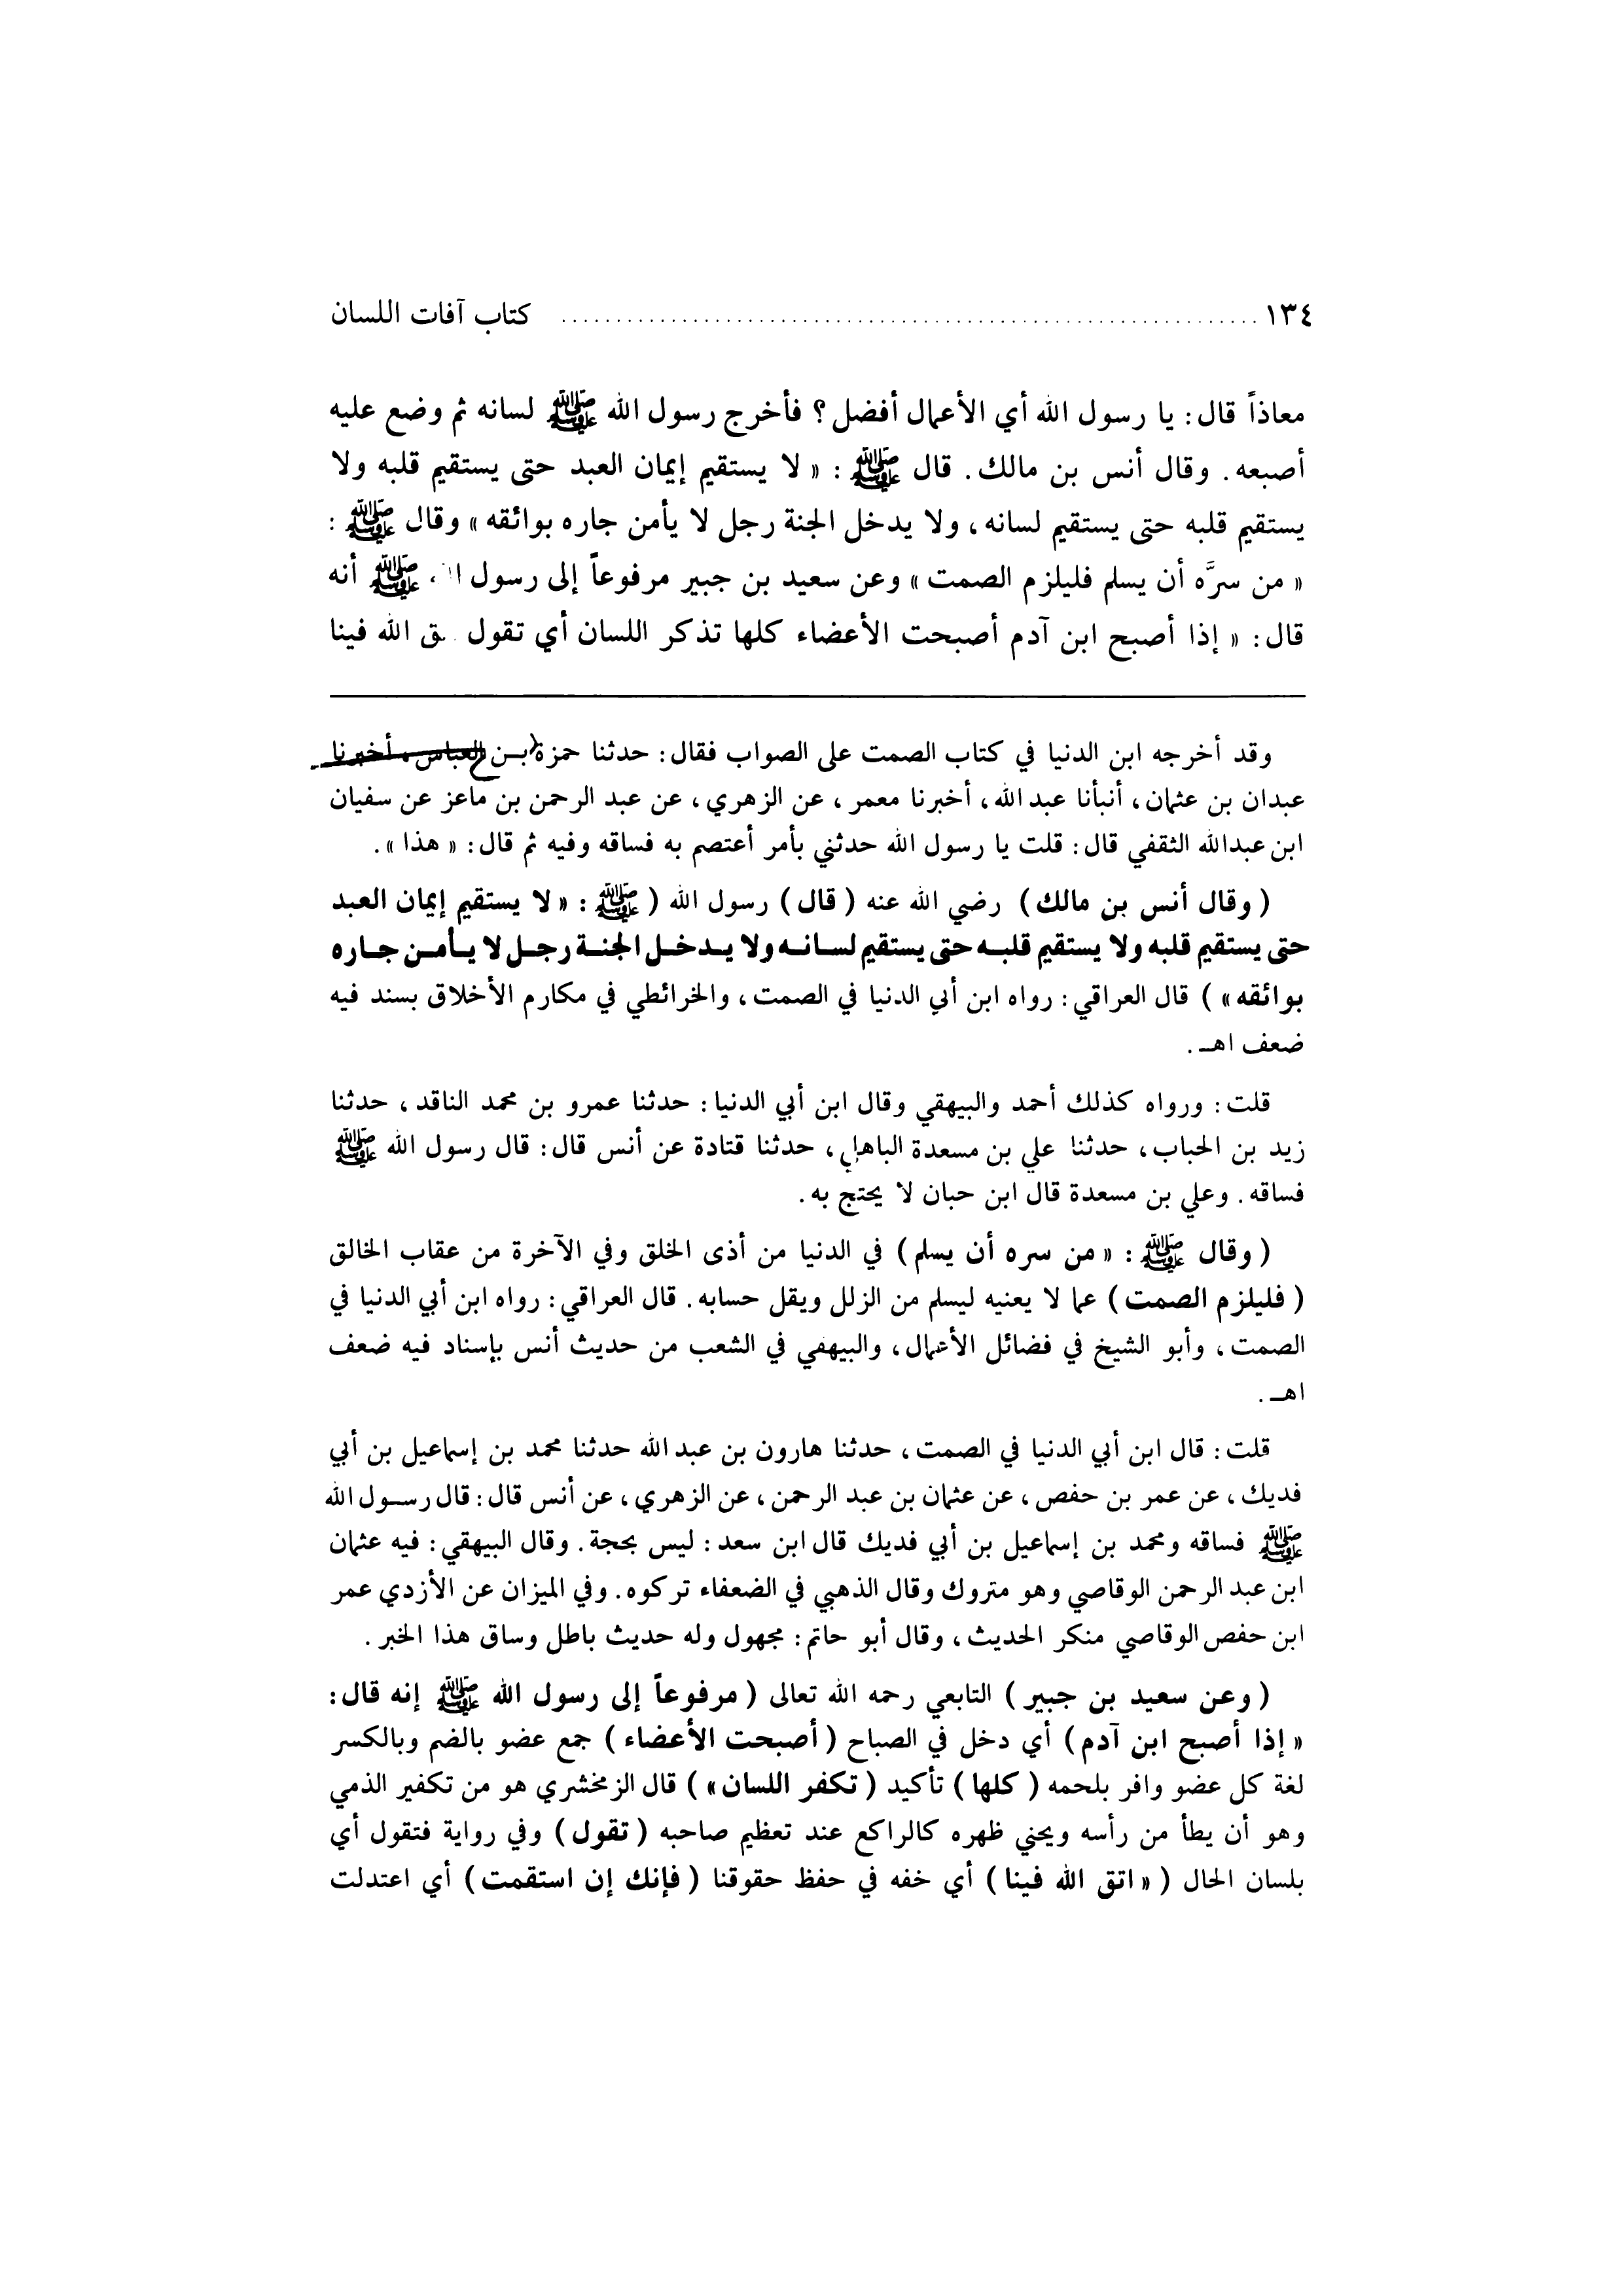 ١٣٤ ........ كتاب آفات اللسان
معاذاً قال: يا رسول الله أي الأعمال أفضل؟ فأخرج رسول الله ﷺ لسانه ثم وضع عليه
أصبعه. وقال أنس بن مالك. قال ﷺ : « لا يستقيم إيمان العبد حتى يستقيم قلبه ولا
يستقيم قلبه حتى يستقيم لسانه، ولا يدخل الجنة رجل لا يأمن جاره بوائقه » وقال ﷺ :
« من سرَّه أن يسلم فليلزم الصمت » وعن سعيد بن جبير مرفوعاً إلى رسول ﷺ أنه
قال: « إذا أصبح ابن آدم أصبحت الأعضاء كلها تذكر اللسان أي تقول الله فينا
وقد أخرجه ابن الدنيا في كتاب الصمت على الصواب فقال: حدثنا حمزة بـن العباس، أخبرنا
عبدان بن عثمان، أنبأنا عبد الله، أخبرنا معمر، عن الزهري، عن عبد الرحمن بن ماعز عن سفيان
ابن عبدالله الثقفي قال: قلت يا رسول الله حدثني بأمر أعتصم به فساقه وفيه ثم قال: « هذا ».
( وقال أنس بن مالك ) رضي الله عنه ( قال ) رسول الله ( ﷺ : « لا يستقيم إيمان العبد
حتى يستقيم قلبه ولا يستقيم قلبــه حتى يستقيم لســانــه ولا يــدخــل الجنــة رجــل لا يــأمــن جــاره
بوائقه » ) قال العراقي: رواه ابن أبي الدنيا في الصمت، والخرائطي في مكارم الأخلاق بسند فيه
ضعف اهـ .
قلت: ورواه كذلك أحمد والبيهقي وقال ابن أبي الدنيا: حدثنا عمرو بن محمد الناقد، حدثنا
زيد بن الحباب، حدثنا علي بن مسعدة الباهلي، حدثنا قتادة عن أنس قال: قال رسول الله ﷺ
فساقه. وعلي بن مسعدة قال ابن حبان لا يحتج به.
( وقال ﷺ : « من سره أن يسلم ) في الدنيا من أذى الخلق وفي الآخرة من عقاب الخالق
( فليلزم الصمت ) عما لا يعنيه ليسلم من الزلل ويقل حسابه. قال العراقي: رواه ابن أبي الدنيا في
الصمت، وأبو الشيخ في فضائل الأعمال، والبيهقي في الشعب من حديث أنس بإسناد فيه ضعف
اهـ .
قلت: قال ابن أبي الدنيا في الصمت، حدثنا هارون بن عبد الله حدثنا محمد بن إسماعيل بن أبي
فديك، عن عمر بن حفص، عن عثمان بن عبد الرحمن، عن الزهري، عن أنس قال: قال رســول الله
ﷺ فساقه ومحمد بن إسماعيل بن أبي فديك قال ابن سعد: ليس بحجة. وقال البيهقي: فيه عثمان
ابن عبد الرحمن الوقاصي وهو متروك وقال الذهبي في الضعفاء تركوه. وفي الميزان عن الأزدي عمر
ابن حفص الوقاصي منكر الحديث، وقال أبو حاتم: مجهول وله حديث باطل وساق هذا الخبر.
( وعن سعيد بن جبير ) التابعي رحمه الله تعالى ( مرفوعاً إلى رسول الله ﷺ إنه قال:
« إذا أصبح ابن آدم ) أي دخل في الصباح ( أصبحت الأعضاء ) جمع عضو بالضم وبالكسر
لغة كل عضو وافر بلحمه ( كلها ) تأكيد ( تكفر اللسان » ) قال الزمخشري هو من تكفير الذمي
وهو أن يطأ من رأسه ويحني ظهره كالراكع عند تعظيم صاحبه ( تقول ) وفي رواية فتقول أي
بلسان الحال ( « اتق الله فينا ) أي خفه في حفظ حقوقنا ( فإنك إن استقمت ) أي اعتدلت